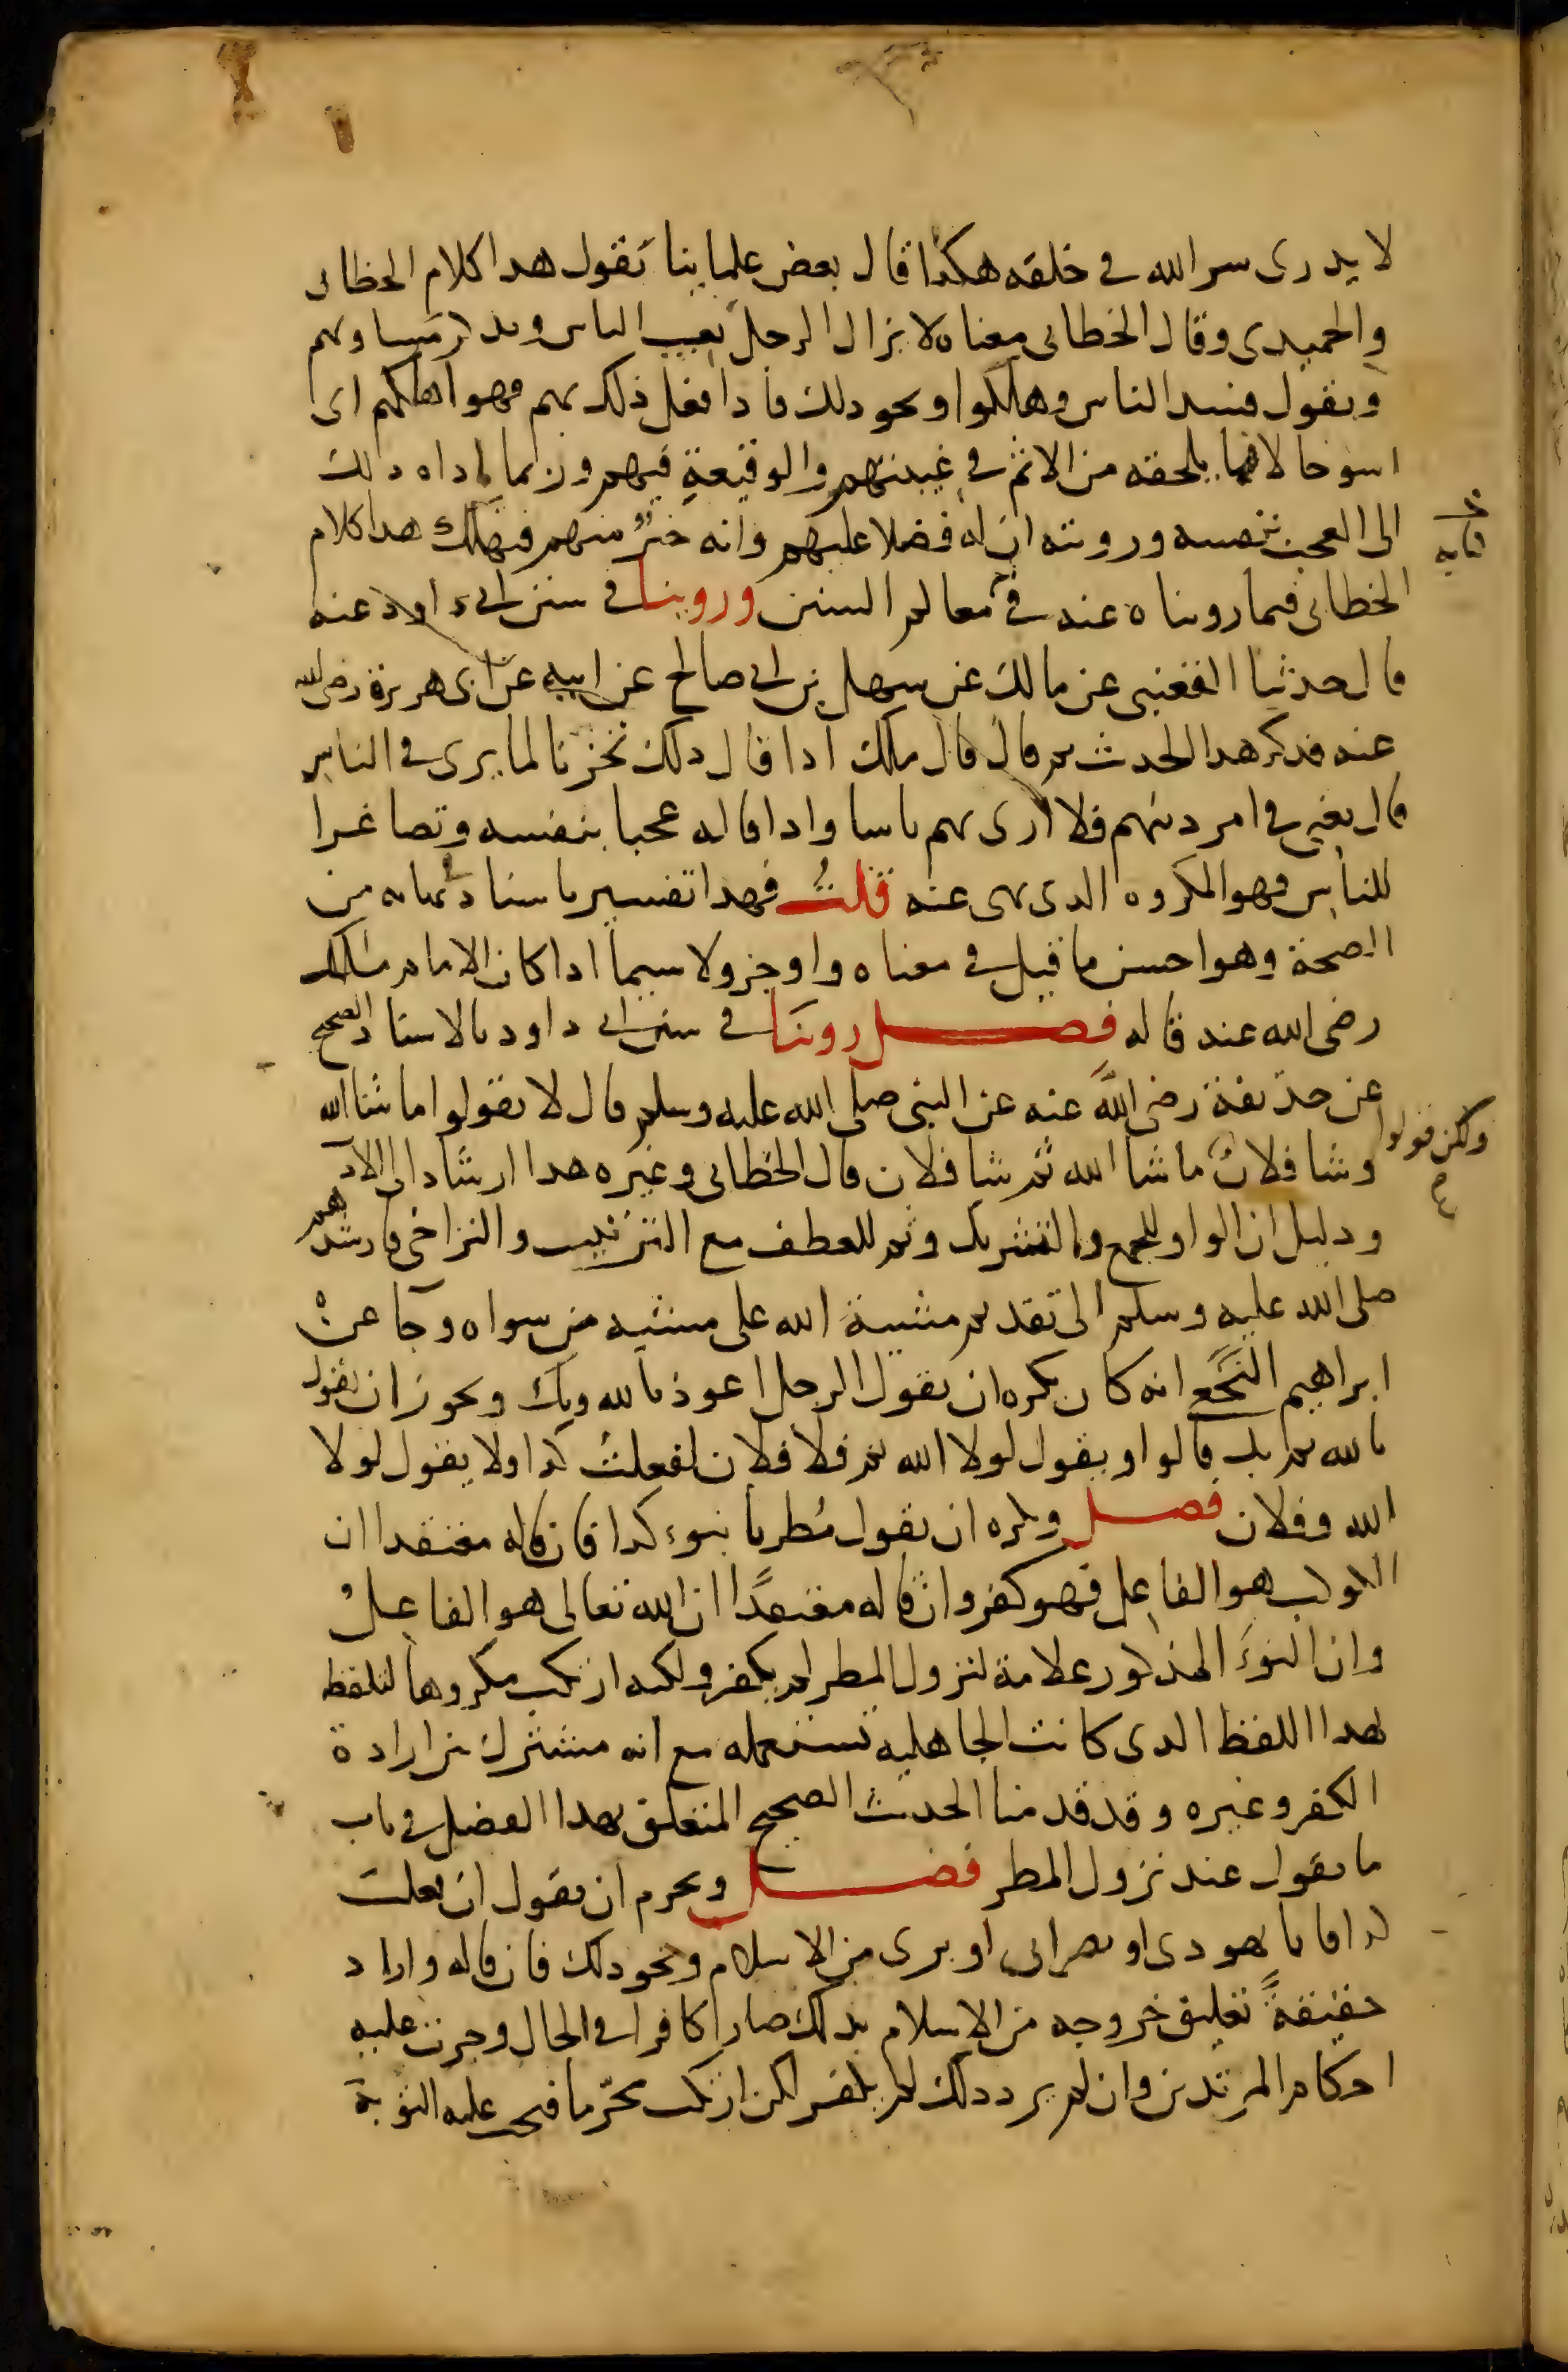 لا يدرى سر الله فى خلقه هكذا قال بعض علماينا يقول هدا كلام الخطابى
والحميدى وقال الخطابى معناه لا يزال الرجل يعيب الناس ويدكر مساويهم
ويقول فسد الناس وهلكوا ونحو دلك فادا فعل ذلك بهم فهو اهلكهم اى
اسوحالا فيما يلحقه من الاثم فى غيبتهم والوقيعة فيهم وربما اداه دلك
الى العجب بنفسه ورويته ان له فضلا عليهم وانه خيرٌ منهم فيهلك هدا كلام
الخطابى فيما رويناه عنه فى معالم السنن وروينا فى سنن ابى داود عنه
قال حدثنا القعنبى عن مالك عن سهيل بن ابى صالح عن ابيه عن ابى هريرة رضى الله
عنه فدكر هدا الحديث ثم قال قال ملك ادا قال دلك تحزنا لما يرى فى الناس
قال يعنى فى امر دينهم فلا ارى بهم باسا وادا قاله عجبا بنفسه وتصاغرا
للناس فهو المكروه الدى نهى عنه قلتُ فهدا تفسير باسناد فى نهايه من
الصحة وهو احسن ما قيل فى معناه واوجز ولا سيما ادا كان الامام ملك
رضى الله عنه قاله فصل روينا فى سنن ابى داود بالاسناد الصحيح
عن حذيفة رضى الله عنه عن النبى صلى الله عليه وسلم قال لا تقولوا ما شا الله
وشا فلان ولكن قولوا ما شا الله ثم شا فلان قال الخطابى وغيره هدا ارشاد الى الادب
ودليل ان الواو للجمع والتشريك وثم للعطف مع الترتيب والتراخى فارشدهم
صلى الله عليه وسلم الى تقديم مشية الله على مشيه من سواه وجا عن
ابراهيم النخعى انه كان يكره ان يقول الرجل اعوذ بالله وبك ويجوز ان يقول
بالله ثم بك قالوا ويقول لولا الله ثم فلا فلان لفعلت كدا ولا يقول لولا
الله وفلان فصل ويكره ان يقول مُطرنا بنوء كدا فان قاله معتقدا ان
الكوكب هو الفاعل فهو كفر وان قاله معتقدًا ان الله تعالى هو الفاعل
وان النوءَ المذكور علامة لنزول المطر لم يكفر ولكنه ارتكب مكروها لتلفظه
بهدا اللفظ الدى كانت الجاهليه تستعمله مع انه مشترك بين ارادة
الكفر وغيره وقد قدمنا الحديث الصحيح المتعلق بهدا الفصل فى باب
ما يقول عند نزول المطر فصل ويحرم ان يقول ان فعلت
كدا فانا يهودى او نصرانى او برى من الاسلام ونحو دلك فان قاله واراد
حقيقةً تعليق خروجه من الاسلام بذلك صار كافرا فى الحال وجرت عليه
احكام المرتدين وان لم يرد دلك لم يكفر لكن ارتكب محرّما فيجب عليه التوبة